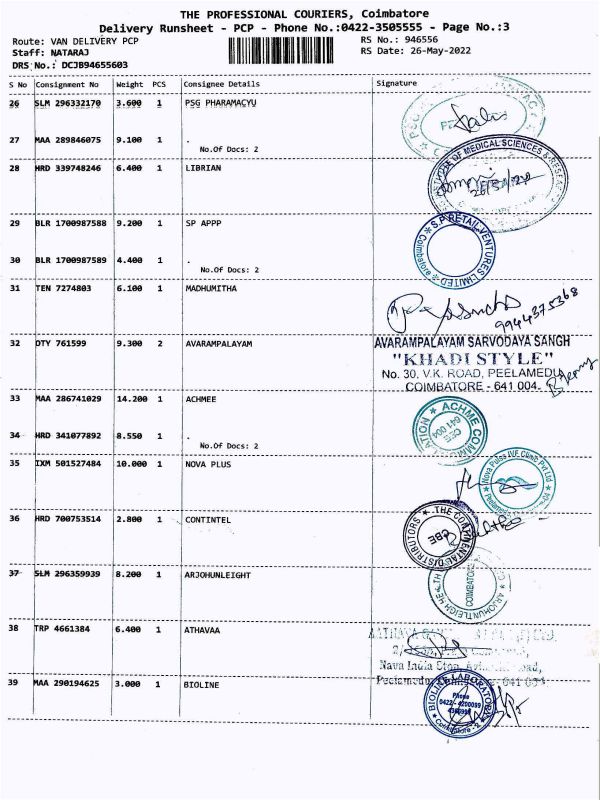 THE PROFESSIONAL COURIERS, Coimbatore
Delivery Runsheet - PCP - Phone No.:0422-3505555 - Page No.:3
Route: VAN DELIVERY PCP RS No.: 946556
Staff: NATARAJ RS Date: 26-May-2022
DRS No.: DCJB94655603
S No Consignment No Weight PCS Consignee Details Signature
26 SLM 296332170 3.600 1 PSG PHARAMACYU
27 MAA 289846075 9.100 1 .
No.Of Docs: 2
28 HRD 339748246 6.400 1 LIBRIAN
OF MEDICAL SCIENCES &
29 BLR 1700987588 9.200 1 SP APPP
S.P RETAIL VENTURES LIMITED
Coimbatore
30 BLR 1700987589 4.400 1 .
No.Of Docs: 2
31 TEN 7274803 6.100 1 MADHUMITHA
9944375368
32 OTY 761599 9.300 2 AVARAMPALAYAM
AVARAMPALAYAM SARVODAYA SANGH
"KHADI STYLE"
No. 30, V.K. ROAD, PEELAMEDU
COIMBATORE - 641 004.
33 MAA 286741029 14.200 1 ACHMEE
ACHME
CBE
641 004
34 HRD 341077892 8.550 1 .
No.Of Docs: 2
35 IXM 501527484 10.000 1 NOVA PLUS
Nova Pulse IVF Clinic Pvt Ltd
36 HRD 700753514 2.800 1 CONTINTEL
THE CONTINENTAL DISTRIBUTORS
CBE
37 SLM 296359939 8.200 1 ARJOHUNLEIGHT
COIMBATORE
38 TRP 4661384 6.400 1 ATHAVAA
Nava India Stop,
Peelamedu
39 MAA 290194625 3.000 1 BIOLINE
BIOLINE LABORATORY
Phone
0422 - 4200099
Coimbatore